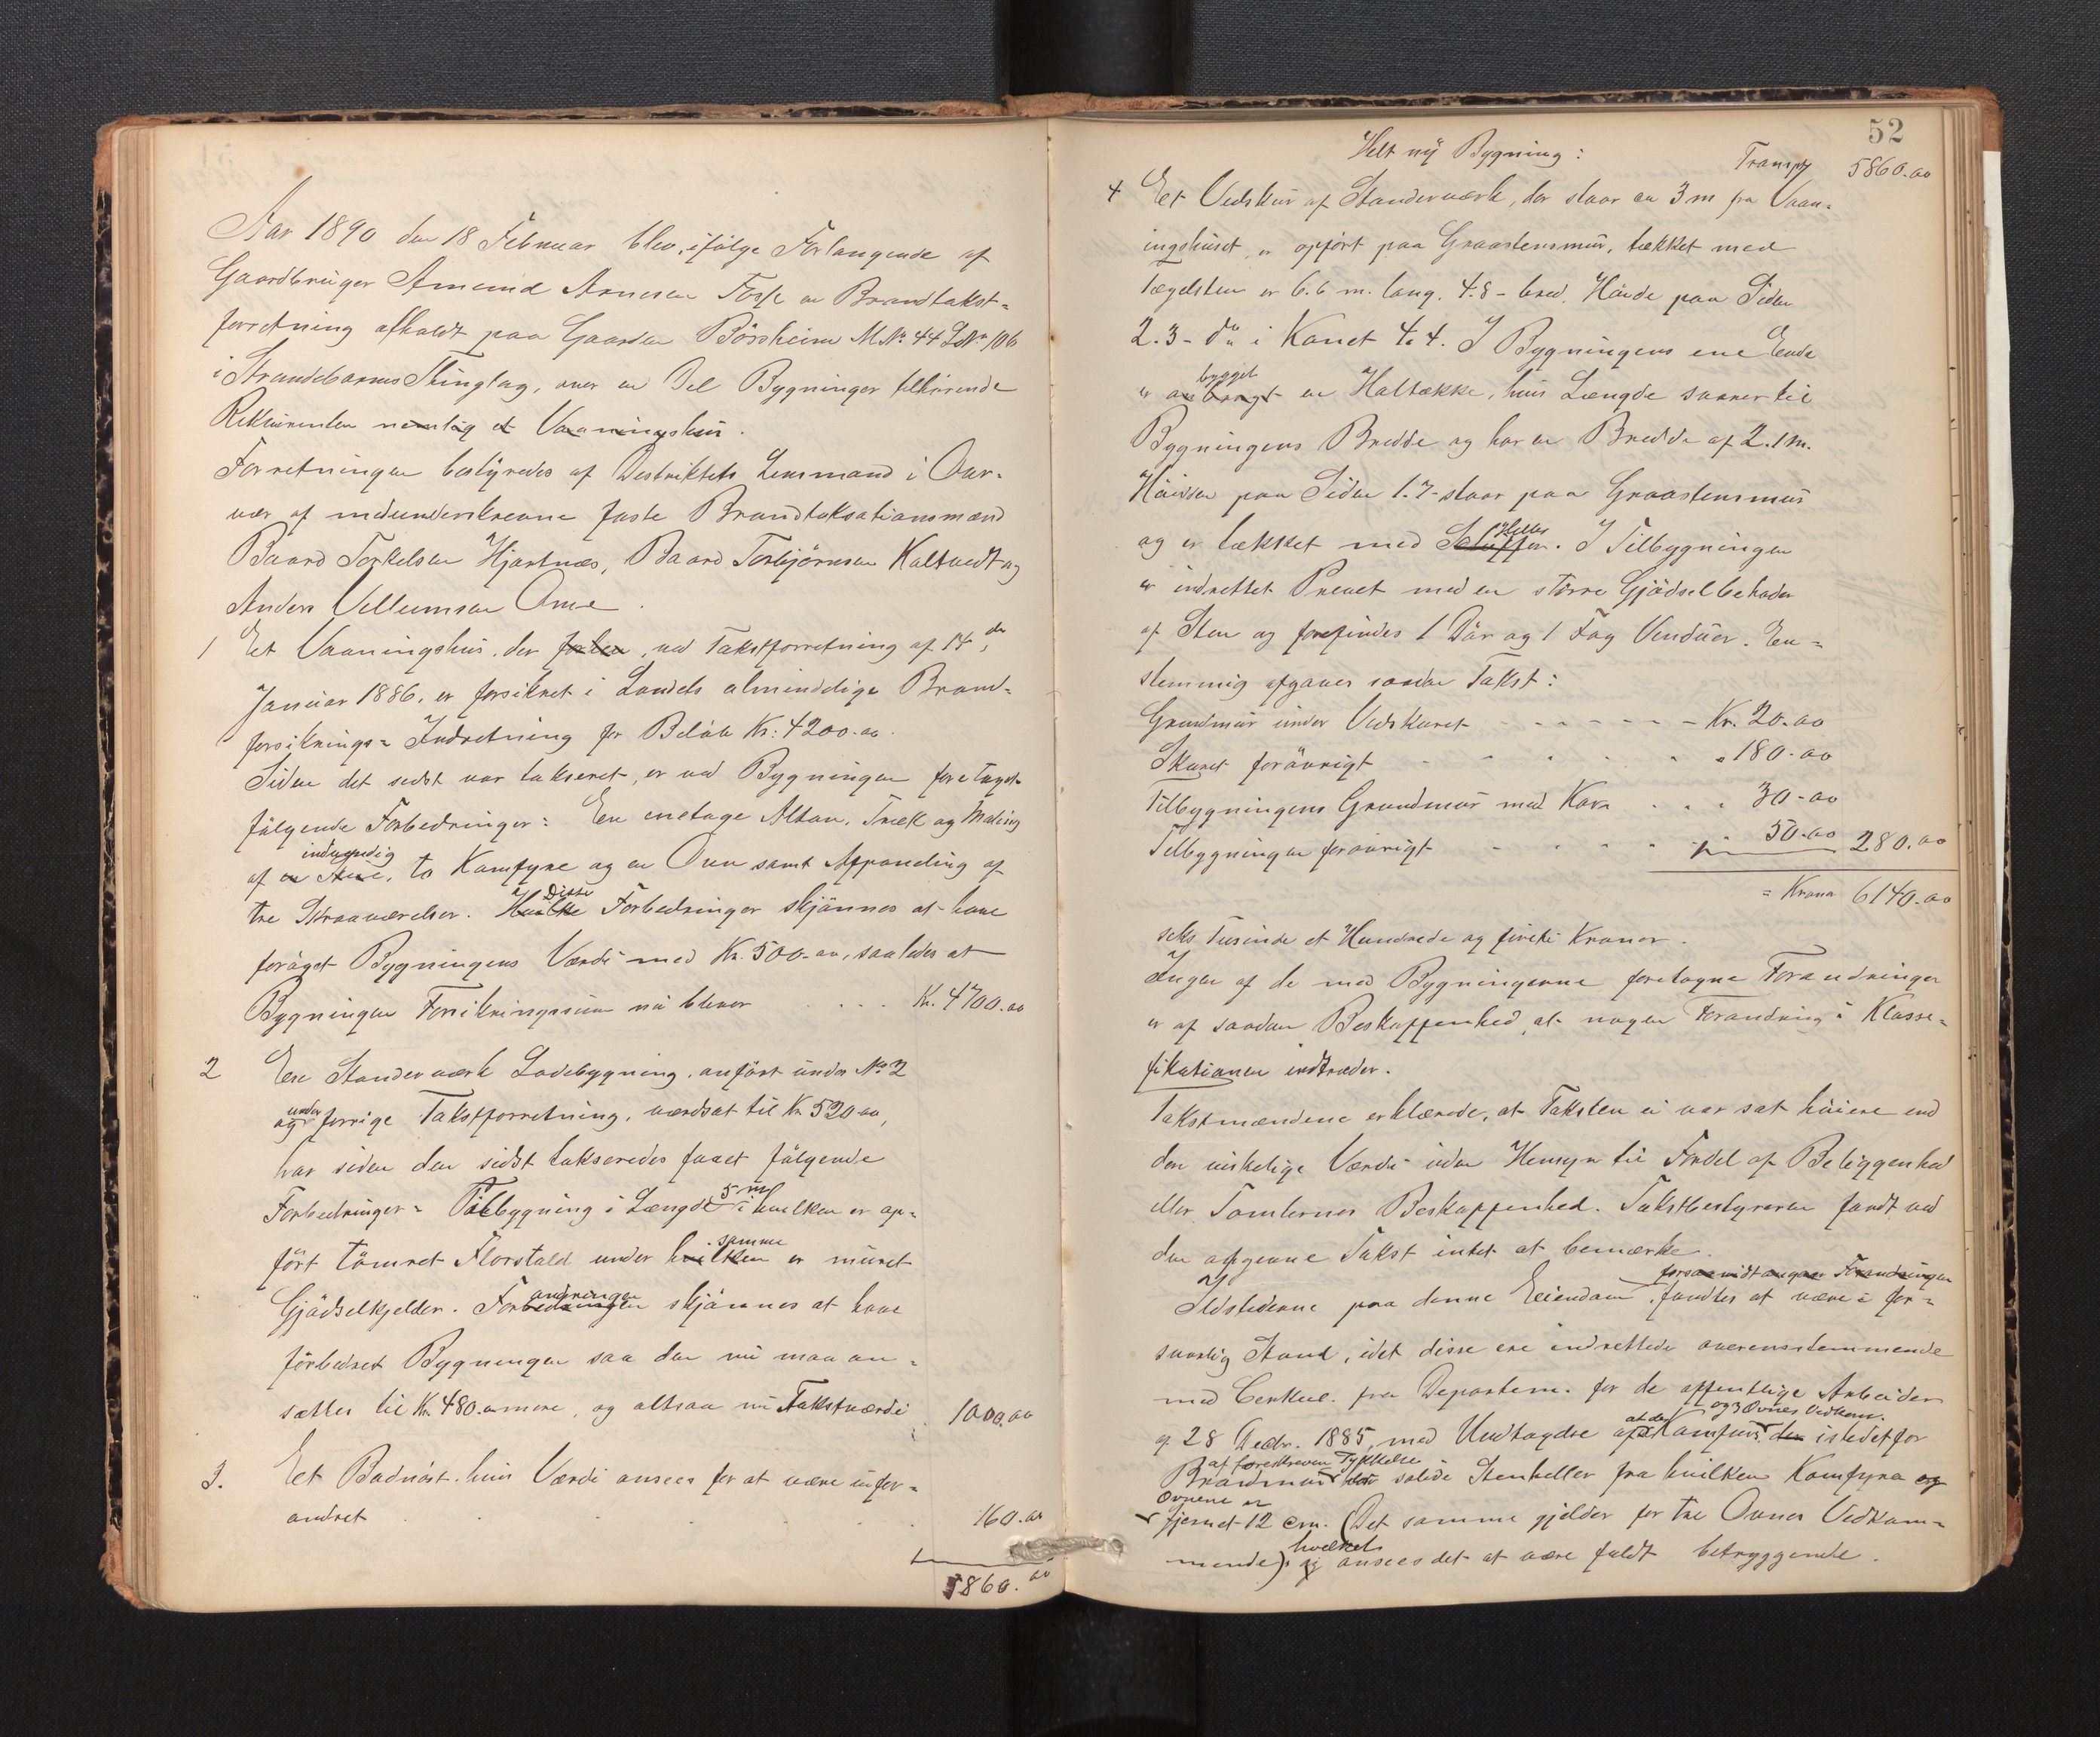 Aar 1890 den 18 Februar blev, ifølge Forlangende af
Gaardbruger Amund Arnesen Fosse en Brandtakst-
forretning afholdt paa Gaarden Børsheim M.No. 44 L.No. 106
i Strandebarms Thinglag, over en Del Bygninger tilhørende
Rekvirenten nemlig et Vaaningshus.
Forretningen bestyredes af Destriktets Lensmand i Over-
vær af medunderskrevne faste Brandtaksationsmænd
Baard Torkelsen Hjartnæs, Baard Torbjørnsen Kaltvedt og
Anders Villumsen Ome.
1 Et Vaaningshus, der forben, ved Takstforretning af 14de
Januar 1886, er forsikret i Landets almindelige Brand-
forsiknings-Indretning for Beløb Kr: 4200.00.
Siden det sidst var takseret, er ved Bygningen foretaget
følgende Forbedringer: En enetage Altan, Træk og Maling
indvendig
af en Stue, to Komfyre og en Ovn samt Afpaneling af
Disse
tre Straaværelser. Hvilke Forbedringer skjønnes at have
forøget Bygningens Værdi med Kr. 500.00, saaledes at
Bygningen Forsikringssum nu bliver . . . . Kr. 4700.00
2 En Standerværk Ladebygning, anført under No. 2
under
og forrige Takstforretning, værdsat til Kr 520 00,
har siden den sidst takseredes faaet følgende
5 m
Forbedringer: Tilbygning i Længde i hvilken er op-
samme
ført tømret Florstald under hvilken er muret
andringen
Gjødselkjelder. Forbedringen skjønnes at have
forbedret Bygningen saa den nu maa an-
sættes til Kr. 480.00 mere, og altsaa nu Takstværdi 1000.00
3. Et Badnøst, hvis Værdi ansees for at være ufor-
andret . . . . 160.00
5860.00
52
Helt ny Bygning:
Transpt 5860.00
4 Et Vedskur af Standerværk, der staar ca 3 m fra Vaan-
ingshuset, er opført paa Graastensmur, tækket med
Tægelsten er 6.6 m. lang. 4.8 - bred. Høide paa Siden
2.3 - do i Kanet 4.4. I Bygningens ene Ende
bygget
er anbragt en Haltække, hvis Længde svarer til
Bygningens Bredde og har en Bredde af 2.1 m.
Høiden paa Siden 1.7 - staar paa Graastensmur
Heller
og er tækket med Skiffer. I Tilbygningen
er indrettet Prevet med en større Gjødselbeholder
af Sten og forefindes 1 Dør og 1 Fag Vinduer. En-
stemmig afgaves saadan Takst:
Grundmur under Vedskuret - - - - - - Kr. 20.00
Skuret forøvrigt - - . . . . " 180.00
Tilbygningens Grundmur med Kar . . . 30.00
Tilbygningen forøvrigt - - - . . 50.00 280.00
= Kroner 6140.00
seks Tusinde et Hundrede og firti Kroner.
Ingen af de med Bygningerne foretagne Forandringer
er af saadan Beskaffenhed, at nogen Forandring i Klasse-
fikationen indtræder.
Takstmændene erklærede, at Taksten ei var sat høiere end
den virkelige Værdi uden Hensyn til Fordel af Beliggenhed
eller Tomternes Beskaffenhed. Takstbestyreren fandt ved
den afgivne Takst intet at bemærke.
forsaavidt angaar Forandringen
Ildstederne paa denne Eiendom, fandtes at være i for-
svarlig Stand, idet disse ere indrettede overensstemmende
med Cerkul. fra Departem. for de offentlige Arbeider
at der og 3 Ovnes Vedkom.
af 28 Decbr. 1885, med Undtagelse af Komfur den istedetfor
af foreskreven Tykkelse
Brandmur har solide Stenheller fra hvilken Komfyre og
Ovnene er
fjernet 12 cm. (Det samme gjelder for tre Ovnes Vedkom-
hvilket
mende). og ansees det at være fuldt betryggende.